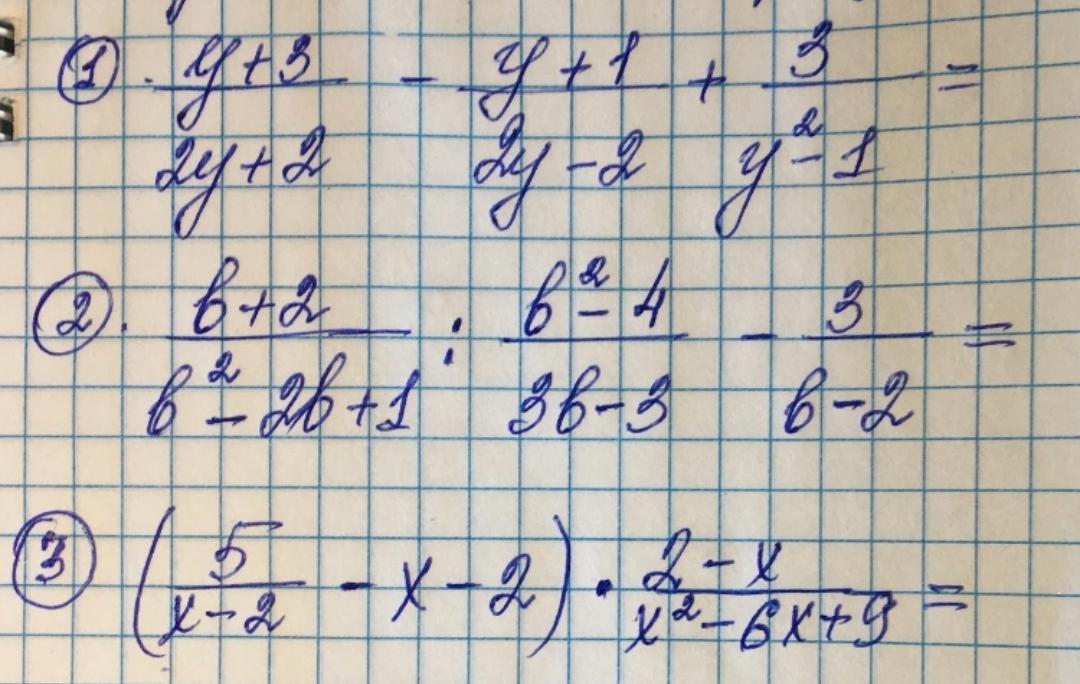 ① . y+3 / 2y+2 - y+1 / 2y-2 + 3 / y²-1 =
② . b+2 / b²-2b+1 : b²-4 / 3b-3 - 3 / b-2 =
③ (5 / x-2 - x - 2) · 2-x / x²-6x+9 =